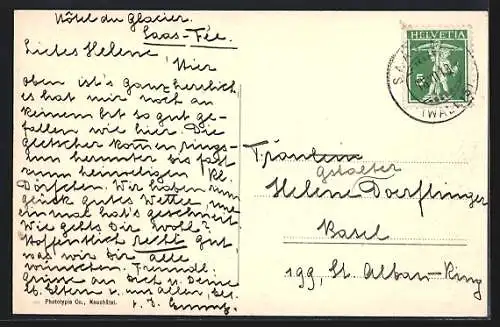 Hôtel du Glacier.
Saas-Fée.
Liebes Helene! Hier
oben ist's ganz herrlich
es hat mir noch an
keinem Ort so gut ge-
fallen wie hier. Die
Gletscher kommen rings-
um herunter bis fast
zum heimeligen kl.
Dörfchen. Wir haben zum
Glück gutes Wetter, nur
einmal hat's geschneit.
Wie geht's Dir wohl?
Hoffentlich recht gut
was wir Dir alle
wünschen. Freundl.
Grüsse an Dich u. Deine
lb. Eltern u. uns Allen,
Phototypie Co., Neuchâtel.
HELVETIA
SAAS
(WALLIS)
Fräulein
Helene Doerflinger
Basel
199, St. Alban-Ring